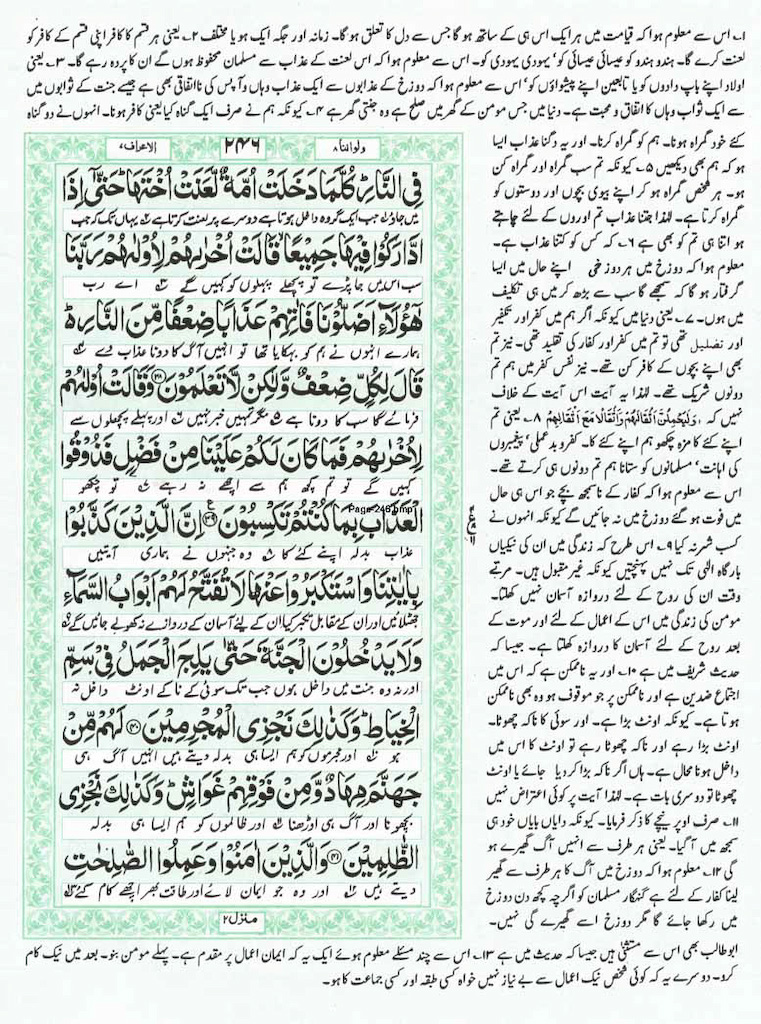 ۱۔ اس سے معلوم ہوا کہ قیامت میں ہر ایک اس ہی کے ساتھ ہو گا جس سے دل کا تعلق ہو گا۔ زمانہ اور جگہ ایک ہو یا مختلف ۲۔ یعنی ہر قسم کا کافر اپنی قسم کے کافر کو
لعنت کرے گا۔ ہندو ہندو کو عیسائی عیسائی کو' یہودی یہودی کو۔ اس سے معلوم ہوا کہ اس لعنت کے عذاب سے مسلمان محفوظ ہوں گے ان کا پردہ رہے گا۔ ۳۔ یعنی
اولاد اپنے باپ دادوں کو یا تابعین اپنے پیشواؤں کو' اس سے معلوم ہوا کہ دوزخ کے عذابوں سے ایک عذاب وہاں و آپس کی نااتفاقی بھی ہے جیسے جنت کے ثوابوں میں
سے ایک ثواب وہاں کا اتفاق و محبت ہے۔ دنیا میں جس مومن کے گھر میں صلح ہے وہ جنتی گھر ہے ۴۔ کیونکہ ہم نے صرف ایک گناہ کیا یعنی کافر ہونا۔ انہوں نے دو گناہ
کئے خود گمراہ ہونا۔ ہم کو گمراہ کرنا۔ اور یہ دگنا عذاب ایسا
ہو کہ ہم بھی دیکھیں ۵۔ کیونکہ تم سب گمراہ اور گمراہ کن
ہو۔ ہر شخص گمراہ ہو کر اپنے بیوی بچوں اور دوستوں کو
گمراہ کرتا ہے۔ لہٰذا جتنا عذاب تم اوروں کے لئے چاہتے
ہو اتنا ہی تم کو بھی ہے ۶۔ کہ کس کو کتنا عذاب ہے۔
معلوم ہوا کہ دوزخ میں ہر دوزخی اپنے حال میں ایسا
گرفتار ہو گا کہ سمجھے گا سب سے بڑھ کر میں ہی تکلیف
میں ہوں۔ ۷۔ یعنی دنیا میں کیونکہ اگر ہم میں کفر اور تکفیر
اور تضلیل تھی تو تم میں کفر اور کفار کی تقلید تھی۔ نیز تم
بھی اپنے بچوں کے کافر کن تھے۔ نیز نفس کفر میں ہم تم
دونوں شریک تھے۔ لہٰذا یہ آیت اس آیت کے خلاف
نہیں کہ وَلَيَحْمِلُنَّ أَثْقَالَهُمْ وَأَثْقَالًا مَّعَ أَثْقَالِهِمْ ۸۔ یعنی تم
اپنے کئے کا مزہ چکھو ہم اپنے کئے کا۔ کفر و بد عملی' پیغمبروں
کی اہانت' مسلمانوں کو ستانا ہم تم دونوں ہی کرتے تھے۔
اس سے معلوم ہوا کہ کفار کے ناسمجھ بچے جو اس ہی حال
میں فوت ہو گئے دوزخ میں نہ جائیں گے کیونکہ انہوں نے
کسب شر نہ کیا ۹۔ اس طرح کہ زندگی میں ان کی نیکیاں
بارگاہ الٰہی تک نہیں پہنچتیں کیونکہ غیر مقبول ہیں۔ مرتے
وقت ان کی روح کے لئے دروازہ آسمان نہیں کھلتا۔
مومن کی زندگی میں اس کے اعمال کے لئے اور موت کے
بعد روح کے لئے آسمان کا دروازہ کھلتا ہے۔ جیسا کہ
حدیث شریف میں ہے ۱۰۔ اور یہ ناممکن ہے کہ اس میں
اجتماع ضدین ہے اور ناممکن پر جو موقوف ہو وہ بھی ناممکن
ہوتا ہے۔ کیونکہ اونٹ بڑا ہے۔ اور سوئی کا ناکہ چھوٹا۔
اونٹ بڑا رہے اور ناکہ چھوٹا رہے تو اونٹ کا اس میں
داخل ہونا محال ہے۔ ہاں اگر ناکہ بڑا کر دیا جائے یا اونٹ
چھوٹا تو دوسری بات ہے۔ لہٰذا آیت پر کوئی اعتراض نہیں
۱۱۔ صرف اوپر نیچے کا ذکر فرمایا۔ کیونکہ دایاں بایاں خود ہی
سمجھ میں آ گیا۔ یعنی ہر طرف سے انہیں آگ گھیرے ہو
گی ۱۲۔ معلوم ہوا کہ دوزخ میں آگ کا ہر طرف سے گھیر
لینا کفار کے لئے ہے گنہگار مسلمان کو اگرچہ کچھ دن دوزخ
میں رکھا جائے گا مگر دوزخ اسے گھیرے گی نہیں۔
ولواننا ۸
۲۴۶
الاعراف ۷
فِي النَّارِ كُلَّمَا دَخَلَتْ أُمَّةٌ لَّعَنَتْ أُخْتَهَا حَتَّىٰ إِذَا
میں جاؤ جب ایک گروہ داخل ہوتا ہے دوسرے پر لعنت کرتا ہے یہاں تک کہ جب
ادَّارَكُوا فِيهَا جَمِيعًا قَالَتْ أُخْرَاهُمْ لِأُولَاهُمْ رَبَّنَا
سب اس میں جا پڑے تو پچھلے پہلوں کو کہیں گے اے رب
هَٰؤُلَاءِ أَضَلُّونَا فَآتِهِمْ عَذَابًا ضِعْفًا مِّنَ النَّارِ
ہمارے انہوں نے ہم کو بہکایا تھا تو انہیں آگ کا دونا عذاب دے
قَالَ لِكُلٍّ ضِعْفٌ وَلَٰكِن لَّا تَعْلَمُونَ ۳۸ وَقَالَتْ أُولَاهُمْ
فرمائے گا سب کا دونا ہے مگر تمہیں خبر نہیں اور پہلے پچھلوں سے
لِأُخْرَاهُمْ فَمَا كَانَ لَكُمْ عَلَيْنَا مِن فَضْلٍ فَذُوقُوا
کہیں گے تو تم کچھ ہم سے اچھے نہ رہے تو چکھو
الْعَذَابَ بِمَا كُنتُمْ تَكْسِبُونَ ۳۹ إِنَّ الَّذِينَ كَذَّبُوا
Page-246.bmp
عذاب بدلہ اپنے کئے کا وہ جنہوں نے ہماری آیتیں
بِآيَاتِنَا وَاسْتَكْبَرُوا عَنْهَا لَا تُفَتَّحُ لَهُمْ أَبْوَابُ السَّمَاءِ
جھٹلائیں اور ان کے مقابل تکبر کیا ان کے لئے آسمان کے دروازے نہ کھولے جائیں گے
وَلَا يَدْخُلُونَ الْجَنَّةَ حَتَّىٰ يَلِجَ الْجَمَلُ فِي سَمِّ
اور نہ وہ جنت میں داخل ہوں جب تک سوئی کے ناکے اونٹ داخل نہ
الْخِيَاطِ وَكَذَٰلِكَ نَجْزِي الْمُجْرِمِينَ ۴۰ لَهُم مِّن
ہو اور مجرموں کو ہم ایسا ہی بدلہ دیتے ہیں انہیں آگ ہی
جَهَنَّمَ مِهَادٌ وَمِن فَوْقِهِمْ غَوَاشٍ وَكَذَٰلِكَ نَجْزِي
بچھونا اور آگ ہی اوڑھنا اور ظالموں کو ہم ایسا ہی بدلہ
الظَّالِمِينَ ۴۱ وَالَّذِينَ آمَنُوا وَعَمِلُوا الصَّالِحَاتِ
دیتے ہیں اور وہ جو ایمان لائے اور طاقت بھر اچھے کام کئے
منزل ۲
ابو طالب بھی اس سے مستثنیٰ ہیں جیسا کہ حدیث میں ہے ۱۳۔ اس سے چند مسئلے معلوم ہوئے ایک یہ کہ ایمان اعمال پر مقدم ہے۔ پہلے مومن بنو۔ بعد میں نیک کام
کرو۔ دوسرے یہ کہ کوئی شخص نیک اعمال سے بے نیاز نہیں خواہ کسی طبقہ اور کسی جماعت کا ہو۔